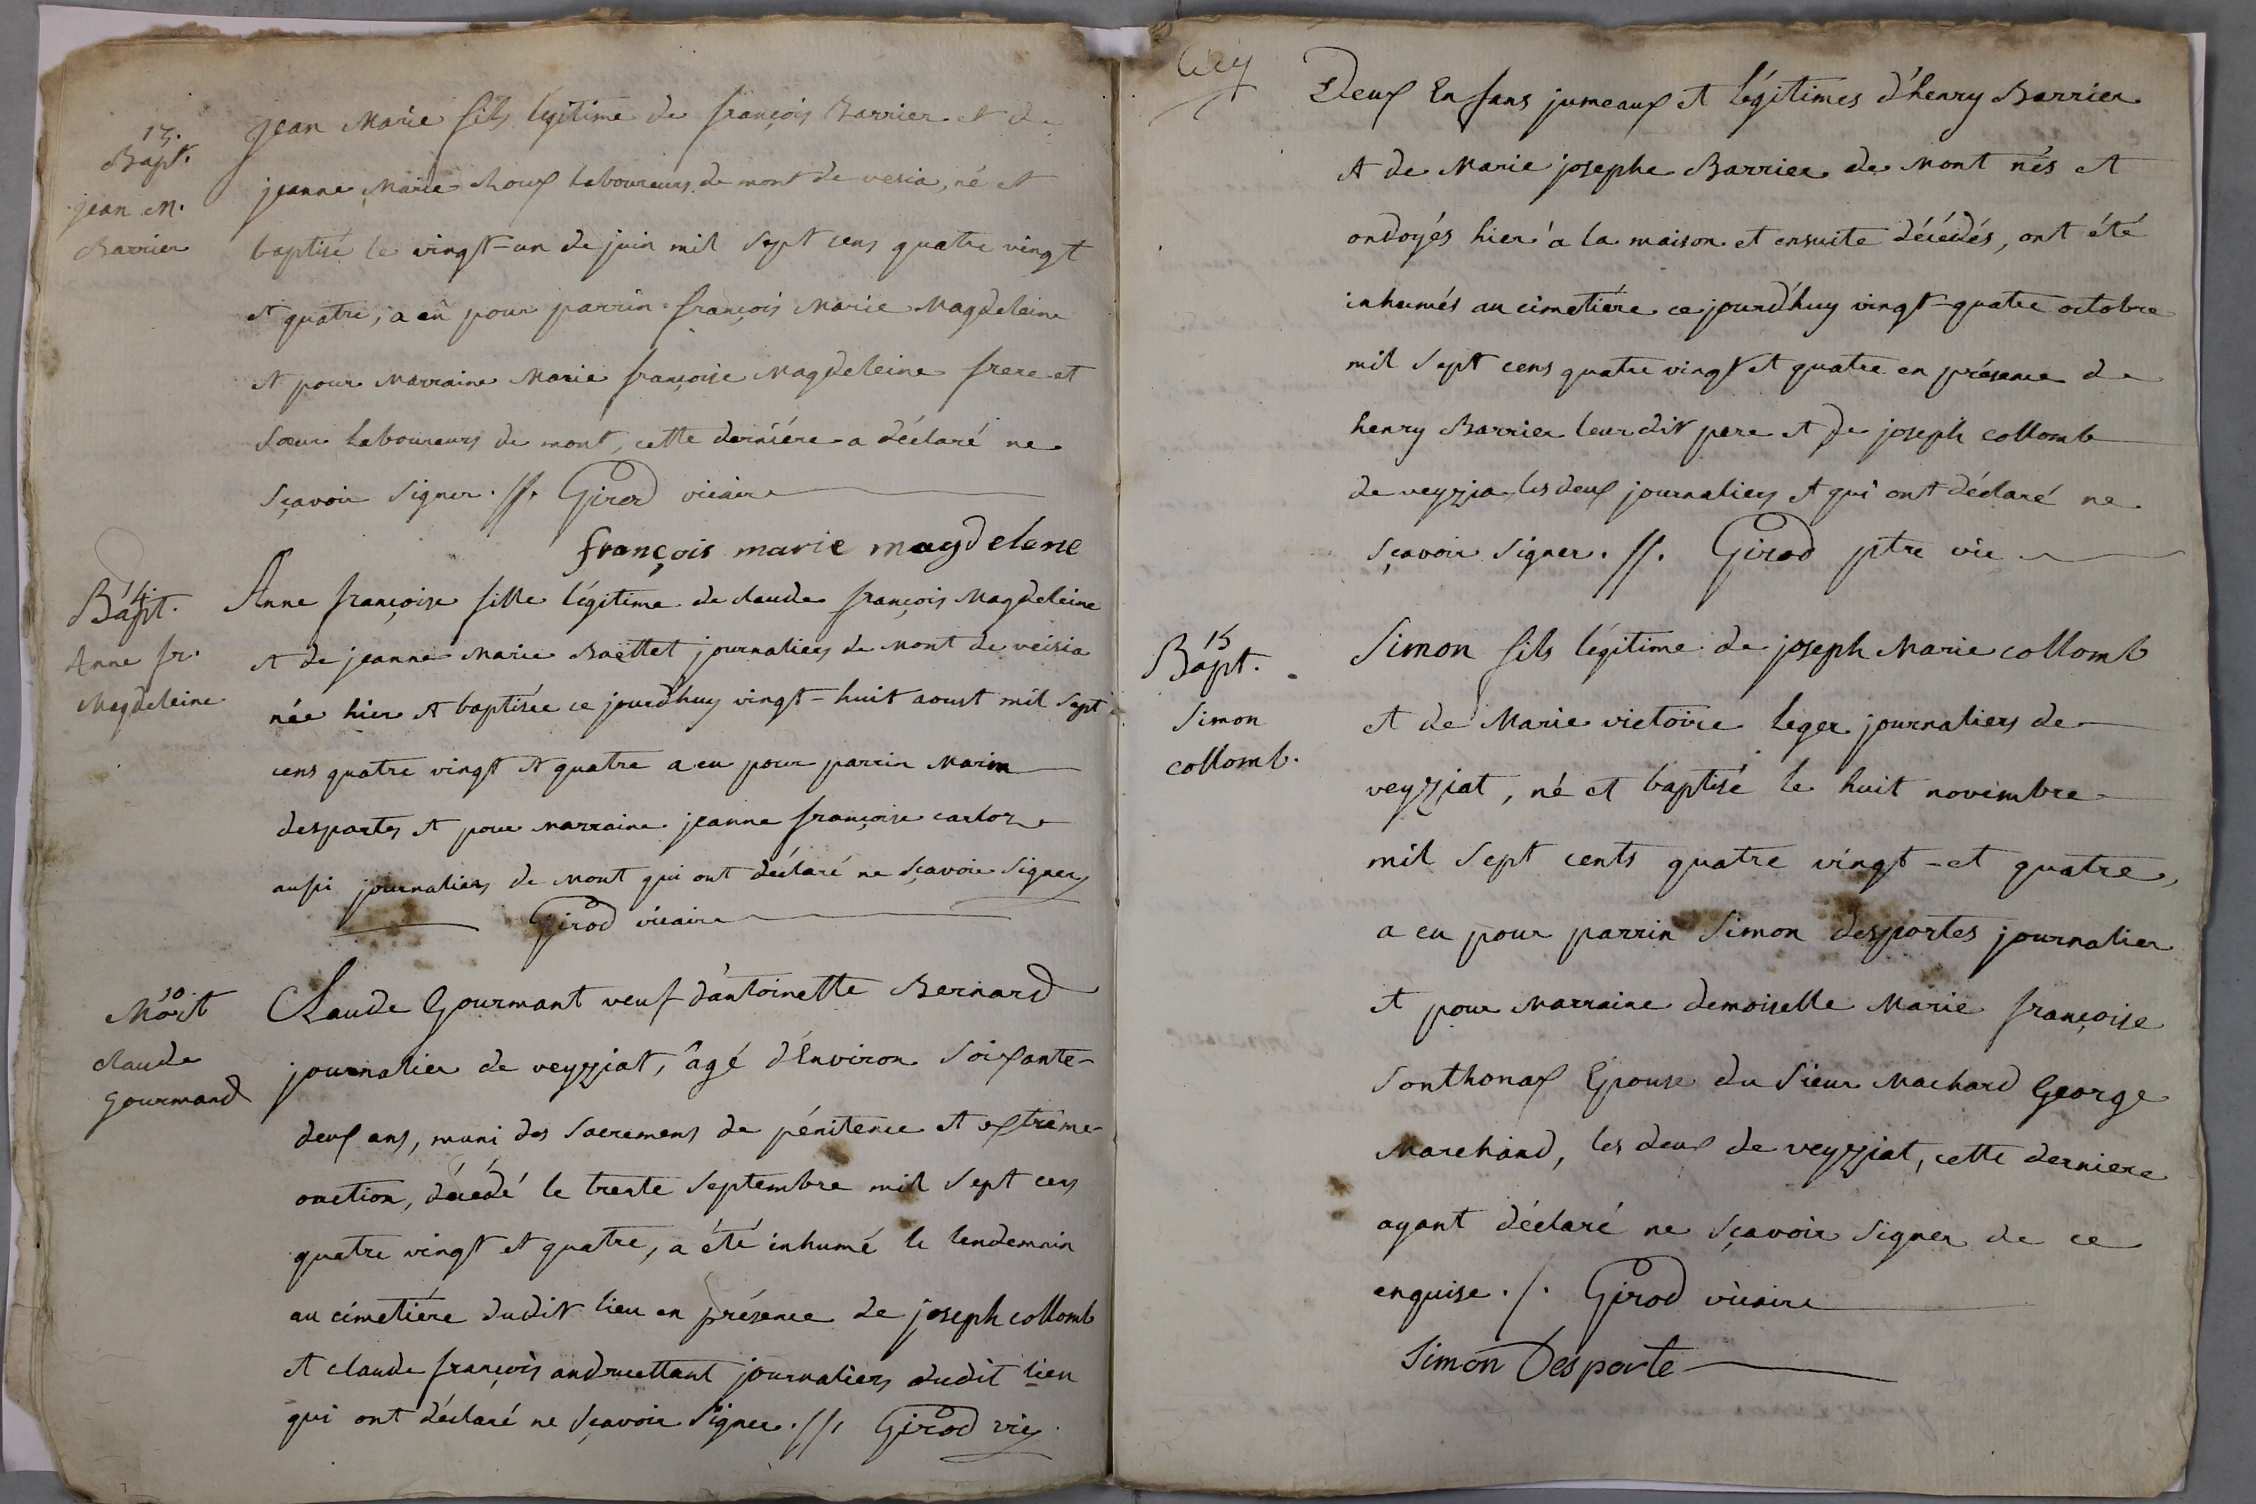 13.
Bapt.
jean M.
Barrier
jean Marie fils legitime de françois Barrier et de
jeanne Marie houx laboureurs de mont de vesia, né et
baptisé le vingt-un de juin mil sept cens quatre vingt
et quatre, a eü pour parrin françois Marie Magdeleine
et pour Marraine Marie françoise Magdeleine frere et
sœur laboureurs de mont, cette derniére a déclaré ne
sçavoir signer. //. Girod vicaire
françois marie magdelene
14.
Bapt.
Anne fr.
Magdeleine
Anne françoise fille légitime de claude françois Magdeleine
et de jeanne Marie Baettet journaliers de Mont de veisia
née hier et baptisée ce jourd'huy vingt-huit aoust mil sept
cens quatre vingt et quatre a eu pour parrin Marin
desportes et pour marraine jeanne françoise carloz
aussi journaliers de Mont qui ont déclaré ne sçavoir signer
Girod vicaire
10
Mort
claude
gourmand
Claude Gourmant veuf d'antoinette Bernard
journalier de veyziat, âgé d'Environ soixante-
deux ans, muni des sacremens de pénitence et extrême-
onction, décédé le trente septembre mil sept cens
quatre vingt et quatre, a été inhumé le lendemain
au cimetiére dudit lieu en présence de joseph collomb
et claude françois andruettant journaliers dudit lieu
qui ont déclaré ne sçavoir signer. //. Girod vic
Deux Enfans jumeaux et légitimes d'henry Barrier
et de Marie josephe Barrier de Mont nés et
ondoyés hier a la maison et ensuite décédés, ont été
inhumés au cimetiére ce jourd'huy vingt-quatre octobre
mil sept cens quatre vingt et quatre en présence de
henry Barrier leur dit pere et de joseph collomb
de veyzia les deux journaliers et qui ont déclaré ne
sçavoir signer. //. Girod ptre vic
15
Bapt.
Simon
collomb.
Simon fils légitime de joseph Marie collomb
et de Marie victoire leger journaliers de
veyziat, né et baptisé le huit novembre
mil sept cents quatre vingt-et quatre,
a eu pour parrin Simon desportes journalier
et pour Marraine demoiselle Marie françoise
Sonthonax Epouse du Sieur Machard George
Marchand, les deux de veyziat, cette derniere
ayant déclaré ne sçavoir signer de ce
enquise ./. Girod vicaire
Simon Desporte